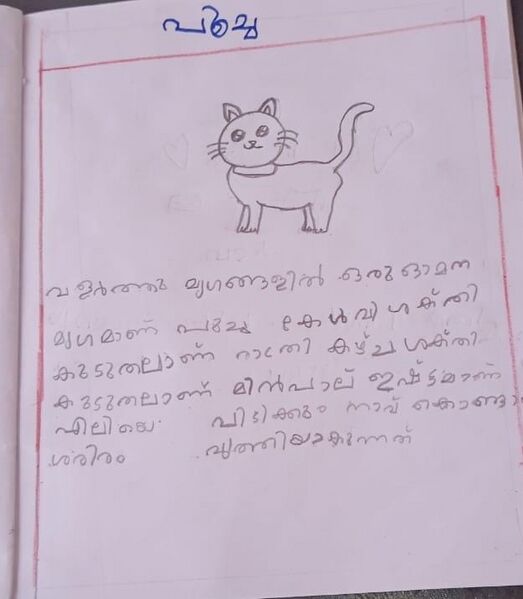 പൂച്ച
വളർത്തു മൃഗങ്ങളിൽ ഒരു ഓമന
മൃഗമാണ് പൂച്ച കേൾവി ശക്തി
കുടുതലാണ് രാത്രി കഴ്ച ശക്തി
കുടുതലാണ് മീൻപാല് ഇഷ്ട്ടമാണ്
എലിയെ പിടിക്കും നാവ് കൊണ്ടാ
ശരിരം വൃത്തിയാകുന്നത്